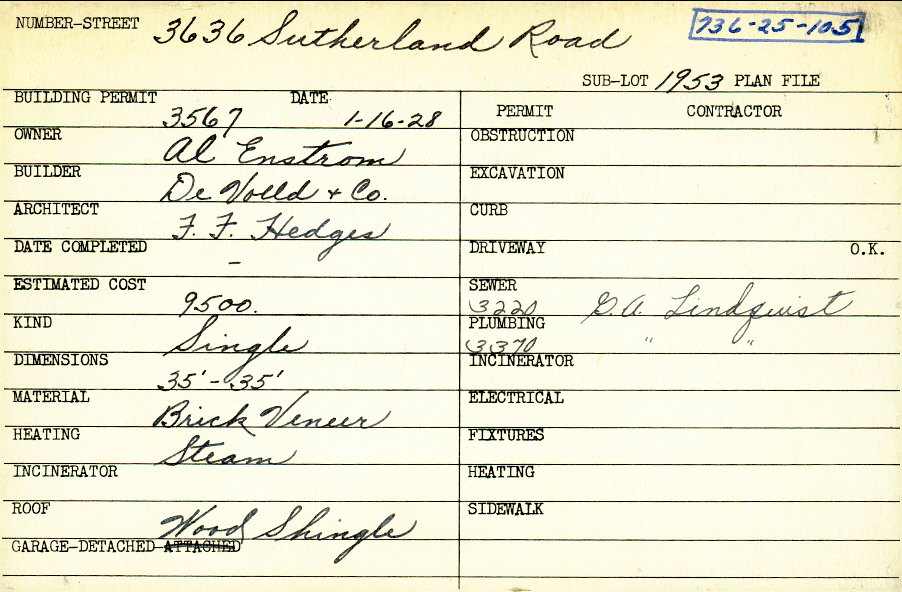 NUMBER-STREET 3636 Sutherland Road 736-25-105
SUB-LOT 1953 PLAN FILE
BUILDING PERMIT DATE
3567 1-16-28
OWNER
Al Enstrom
BUILDER
De Voeld + Co.
ARCHITECT
F. F. Hedges
DATE COMPLETED
-
ESTIMATED COST
9500.
KIND
Single
DIMENSIONS
35' - 35'
MATERIAL
Brick Veneer
HEATING
Steam
INCINERATOR
ROOF
Wood Shingle
GARAGE-DETACHED-ATTACHED
PERMIT CONTRACTOR
OBSTRUCTION
EXCAVATION
CURB
DRIVEWAY O.K.
SEWER
3220 G.A. Lindquist
PLUMBING
3370 " "
INCINERATOR
ELECTRICAL
FIXTURES
HEATING
SIDEWALK